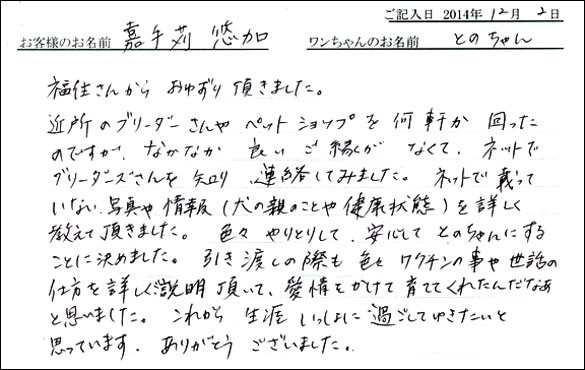 ご記入日 2014年12月2日
お客様のお名前 嘉手苅 悠加 ワンちゃんのお名前 とのちゃん
福佳さんから おゆずり頂きました。
近所のブリーダーさんや ペットショップを 何軒か 回った
のですが、なかなか 良い ご縁が なくて、ネットで
ブリーダーズさんを 知り 、連絡してみました。 ネットで 載って
いない 写真や 情報 (犬の親のことや 健康状態) を 詳しく
教えて 頂きました。 色々 やりとりして、安心して とのちゃんにする
ことに 決めました。 引き渡しの際も 色々 ワクチンの事や 世話の
仕方を 詳しく説明 頂いて、愛情をかけて 育ててくれたんだなあ
と思いました。 これから 生涯 いっしょに 過ごしてゆきたいと
思っています。 ありがとう ございました。